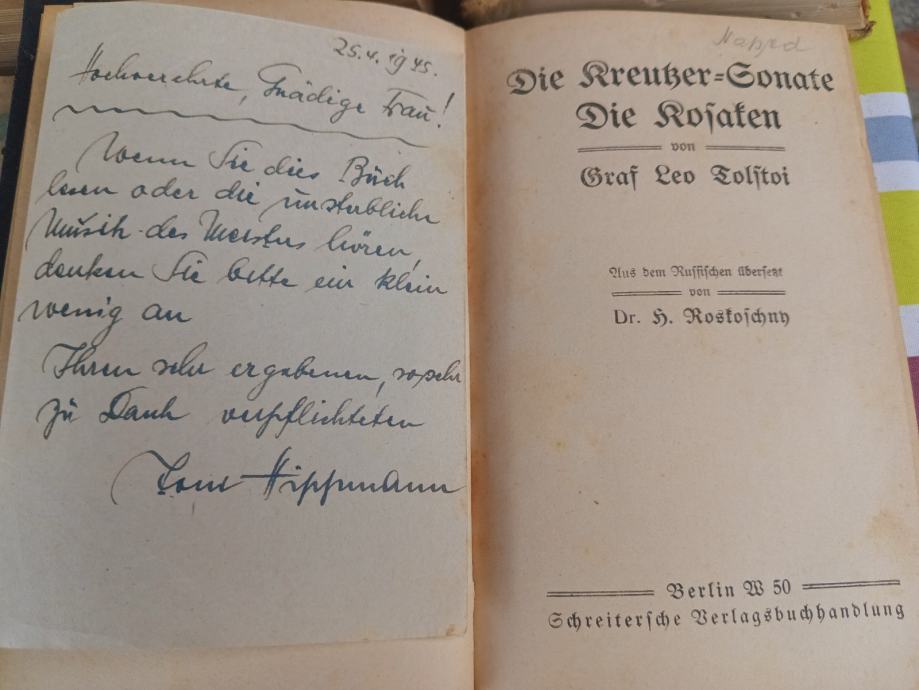 25.4.1945.
Hochverehrte, Gnädige Frau!
Wenn Sie dies Buch
lesen oder die unsterbliche
Musik des Meisters hören,
denken Sie bitte ein klein
wenig an
Ihren sehr ergebenen, so sehr
zu Dank verpflichteten
Hippmann
Die Kreutzer=Sonate
Die Kosaken
von
Graf Leo Tolstoi
Aus dem Russischen übersetzt
von
Dr. H. Roskoschny
Berlin W 50
Schreitersche Verlagsbuchhandlung